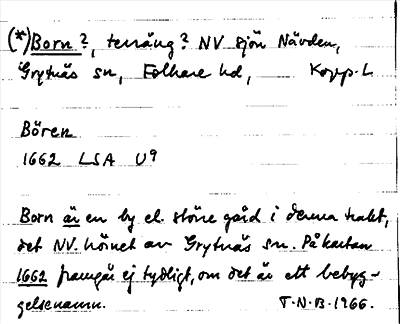 (*) Born?, terräng? NV sjön Nävden,
Grytnäs sn, Folkare hd, Kopp. L.
Bören
1662 LSA U9
Born är en by el. större gård i denna trakt,
det NV. hörnet av Grytnäs sn. På kartan
1662 framgår ej tydligt, om det är ett bebyg-
gelsenamn. T.N.B. 1966.